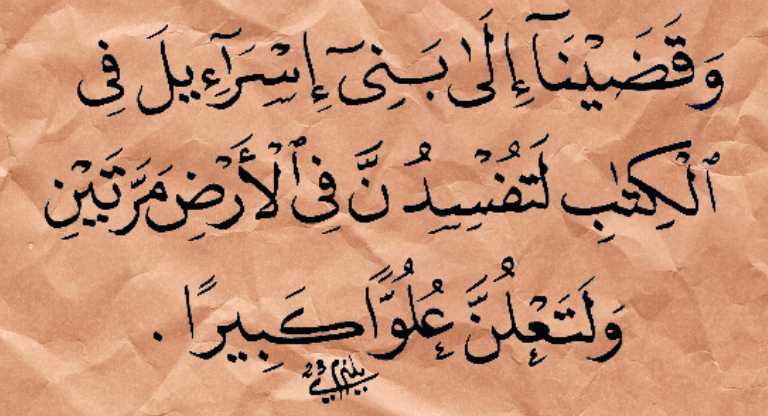 وَقَضَيْنَآ إِلَىٰ بَنِىٓ إِسْرَآءِيلَ فِى
ٱلْكِتَٰبِ لَتُفْسِدُنَّ فِى ٱلْأَرْضِ مَرَّتَيْنِ
وَلَتَعْلُنَّ عُلُوًّا كَبِيرًا .